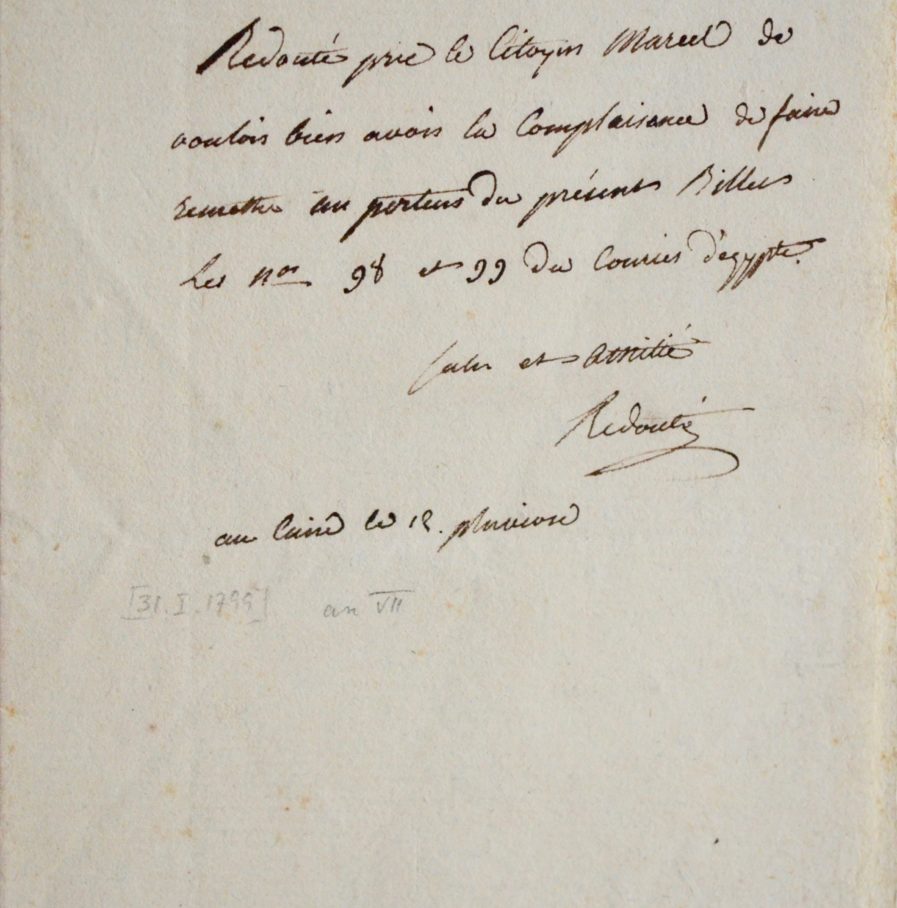 Redouté prie le Citoyen Marcel de
vouloir bien avoir la Complaisance de faire
remettre au porteur du présent Billet
Les nos 98 et 99 du Courier d'egypte.
Salut et amitié
Redouté
au Caire le 12. pluviose
[31. I. 1799] an VII